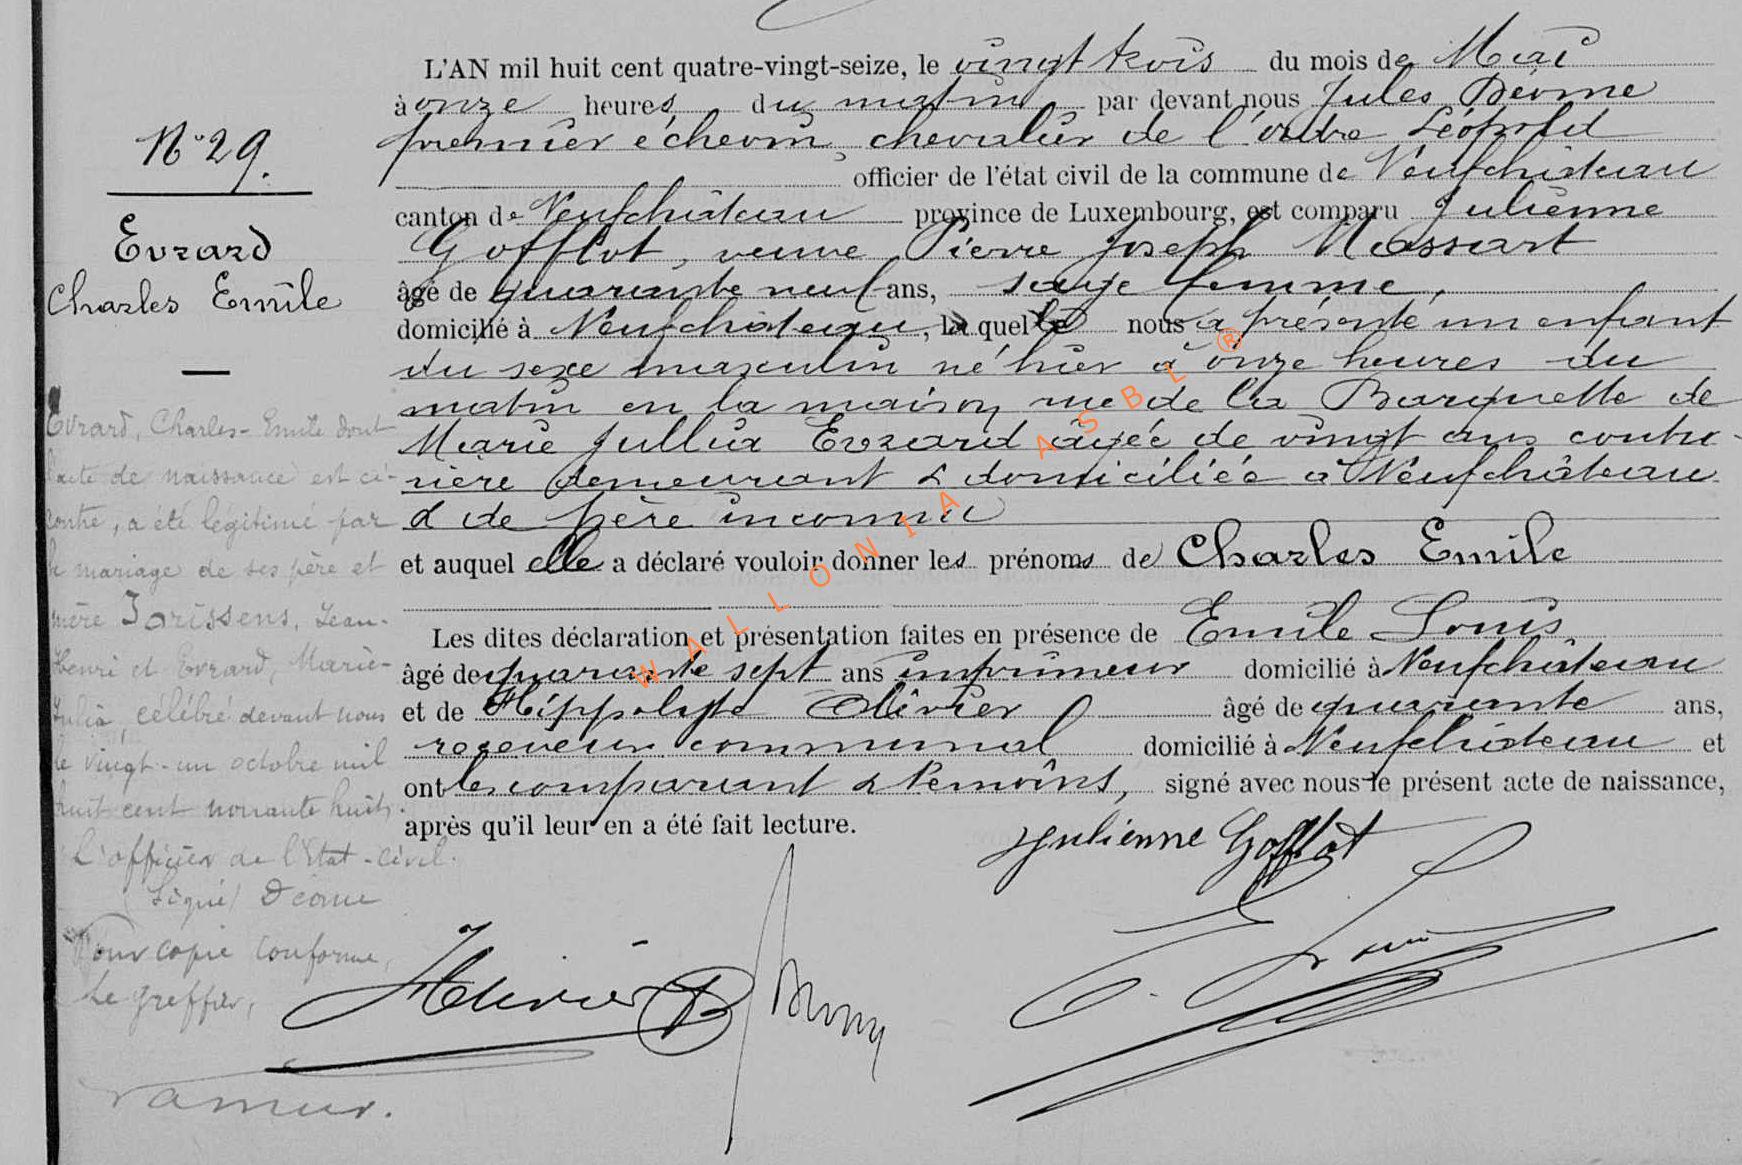 N° 29.
Evrard
Charles Emile
L'AN mil huit cent quatre-vingt-seize, le vingt trois du mois de Mai
à onze heures, du matin par devant nous Jules Déome
premier échevin, chevalier de l'ordre Léopold
officier de l'état civil de la commune de Neufchâteau
canton de Neufchâteau province de Luxembourg, est comparu Julienne
Gofflot, veuve Pierre Joseph Massart
âgé de quarante neuf ans, sage femme,
domicilié à Neufchâteau, laquelle nous a présenté un enfant
du sexe masculin né hier à onze heures du
matin en la maison rue de la Barquette de
Marie Jullia Evrard âgée de vingt ans coutu-
rière demeurant & domiciliée à Neufchâteau
& de père inconnu
et auquel elle a déclaré vouloir donner les prénoms de Charles Emile
Les dites déclaration et présentation faites en présence de Emile Louis
âgé de quarante sept ans imprimeur domicilié à Neufchâteau
et de Hippolyte Olivier âgé de quarante ans,
receveur communal domicilié à Neufchâteau et
ont les comparant & témoins, signé avec nous le présent acte de naissance,
après qu'il leur en a été fait lecture.
Julienne Gofflot
HOlivier
E. Louis
Evrard, Charles-Emile dont
l'acte de naissance est ci-
contre, a été légitimé par
le mariage de ses père et
mère Jorissens, Jean-
Henri et Evrard, Marie-
Julia, célébré devant nous
le vingt-un octobre mil
huit cent nonante huit.
L'officier de l'Etat-civil.
(Signé) Déome
Pour copie conforme,
Le greffier,
WALLONIA ASBL ®